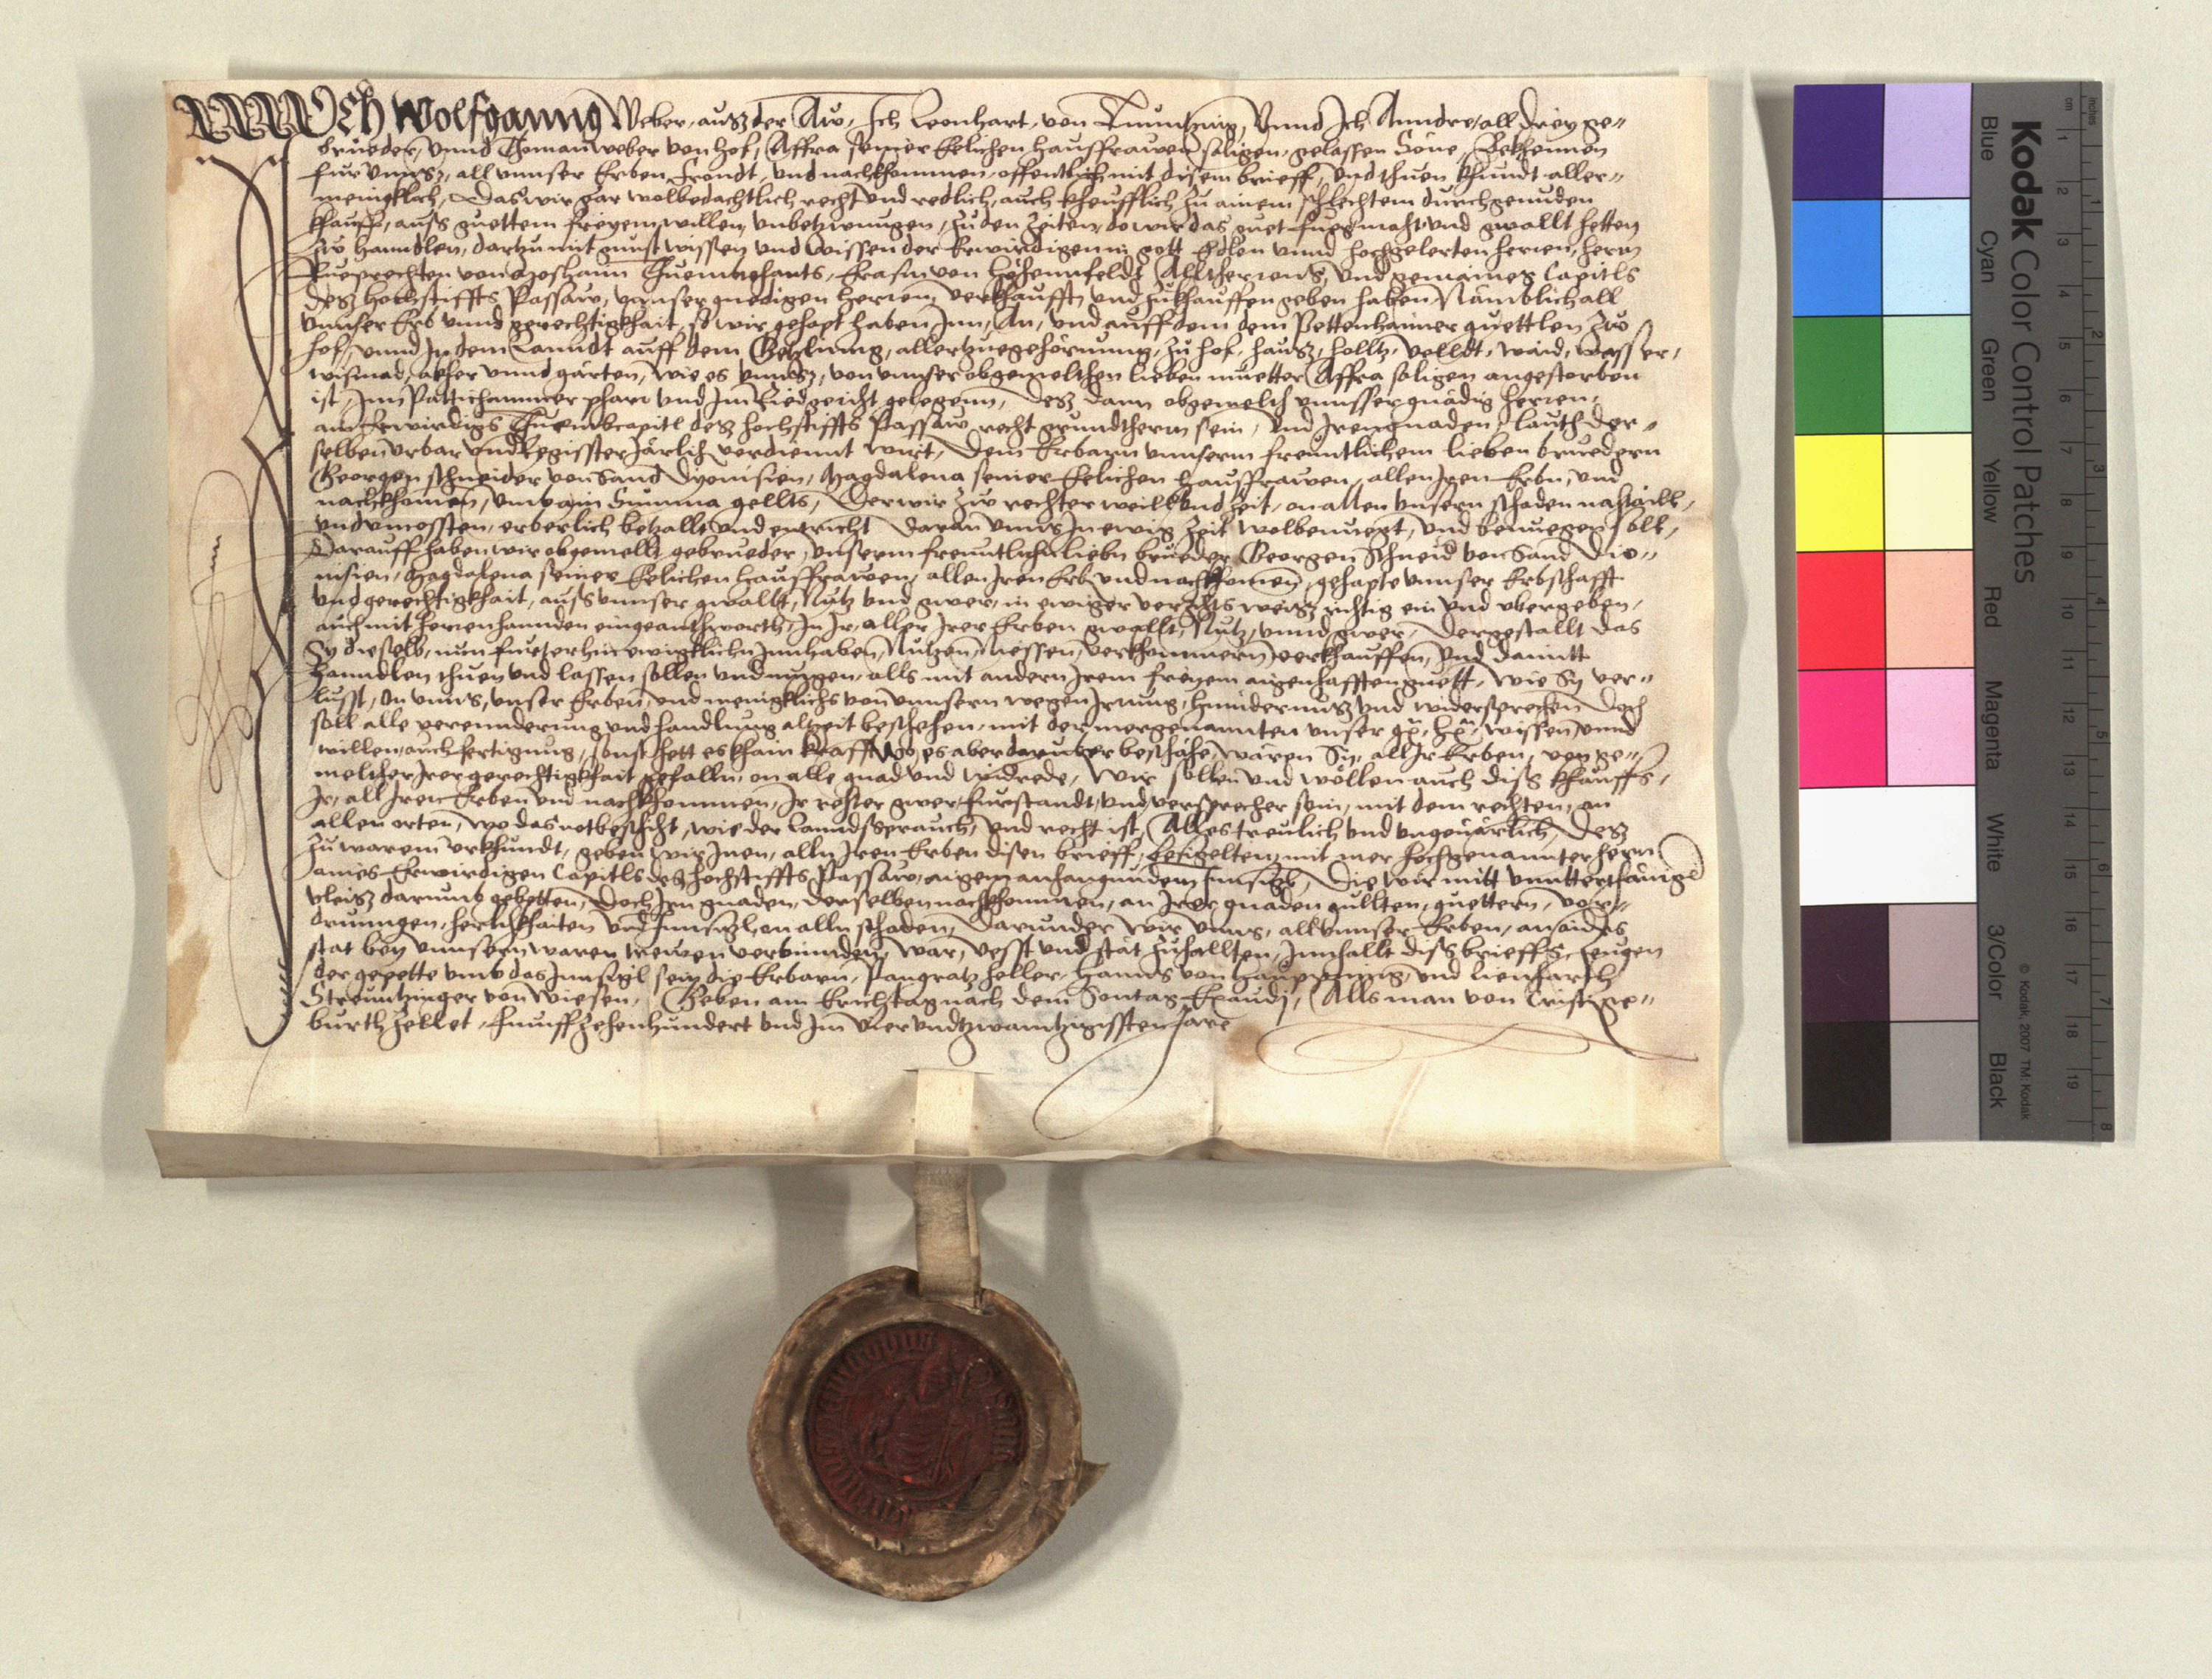 Ich Wolfganng Weber, ausz der Aw, Ich Leonhart, von Vnd Ich Anndre, all drey ge¬
brueder, vnnd Thoman weber von hof, Affra seiner Eelichen hausfrawen saligen, gelassen Söne, Bekhennen
fur vnnsz, all vnnser Erben, freundt, vnd nachkhommen, offentlich mit disem brieff, vnd thuen khundt aller¬
menigklich, Das wir gar wolbedachtlich, recht vnd redlich, auch kheufflich, zu ainem schlechtem durchgennden
khauff, aufs guettem freyem willen, vnbetzwungen, zu den Zeiten, do wir das guet fueg macht vnd gwallt hetten
Zw hanndlen, dartzu mit gunst wissen vnd willen der Erwirdigenn, gott Edlen vnnd hochgelerten herren, herrn
Rueprechten von Moshaim Thuembdechants, Erasm von Hohennfeldt Alltherrens, vnd gemaines Capitls
desz hochstiffts Passaw, vnnser gnedigen herren, verkhaufft vnd zukhauffen geben haben Namblich all
vnnser Erb vnnd gerechtigkhait, so wir gehapt haben Inn, An, vnd auff dem dem Pettenhaimer guettlen Zw
hof, vnnd In dem Lanndt auff dem allertzuegehörnung, zu hof, hausz, holltz, velldt, waid, wasser,
wismad, akher vnnd garten, wie es vnnsz, von vnnser obgemelthen lieben muetter Affra saligen angestorben
ist, Inn pharr vnd Im Riedgericht gelegenn, Desz dann obgemelt vnnsser gnädig herren,
ain Erwirdigs Thuembcapitl desz hochstiffts Passaw recht grundtherrn sein, vnd Iren gnaden, lauth der¬
selben vrbar vnd Regisster Järlich verdiennt wirt, Dem Erbarn vnnserm freuntlichem lieben bruedern
Georgen schneider von Sand Dyonisien, Magdalena seiner Eelichen hausfrawen, allen Iren Erbn, vnd
nachkhomen, vmb ain Summa gellts, Der wir Zw rechter weill vnd Zeit, on allen vnsern schaden
vnd erberlich betzallt vnd entricht daran vnns In ewig Zeit wolbenuegt, vnd benuegen sollt,
Darauff haben wir obgemellt gebrueder, vnserm freuntlichn liebn brueder Georgen Schneid von Sand Dio¬
nisien, Magdalena seiner Eelichen hausfrawen, allen Iren Erb vnd nachkhomen, gehapte vnnser Erbschafft
vnd gerechtigkhait, aufs vnnser gwallt, Nutz vnd gwer, in ewiger vertzichts weisz richtig ein vnd vbergeben,
auch mit herrenhannden eingeanthworth, In Ir, aller Irer Erben gwallt, Nutz, vnnd gwer, Dergestallt das
Sy dieselb, nun fueterhin ewigklichn Innhaben, Nutzen, Niessen, verkhommern, verkhauffen, vnd damitt
hanndlen thuen vnd lassen sollen vnd mugen, alls mit andern Irem freyem aigenhafften guett, wie Sy ver¬
lusst, on vnns, vnser Erben, vnd menigklichs von vnnsern wegen Irrung, hindernusz vnd widersprechen Doch
soll alle verennderung vnd handlung altzeit beschehen, mit der mergenannten vnser gn. hn. wissen vnnd
willen, auch fertigung, sonst hett es khain Krafft Wo es aber daruber beschahe, wären Sy, all Ir Erben, von ge¬
melther Irer gerechtigkhait gefalln, on alle gnad vnd widrede, Wir sollen vnd wöllen auch diss khauffs,
Ir, all Iren Erben vnd nachkhommen, Ir rechter gwer, furstandt, vnd versprecher sein, mit dem rechten, an
allen orten, wo das notbeschicht, wie der lanndsgprauch, vnd recht ist, Alles treulich vnd vngeuärlich, Desz
Zu warem vrkhundt, geben wir Inen, alln Iren Erben disen brieff, besigelten, mit mer hochgenannter herrn
aines Erwirdigen Capitls des hochstiffts Passaw, aigem anhangundem Innsigl, Die wir mitt vnntterthänigem
vleisz darumb gebetten, Doch Irn gnaden, derselben nachkhommen, an Irer gnaden gullten, guettern, vor¬
drunngen, herlichkhaiten vnd Innsigl, on alln schaden, Darunder wir vnns, all vnnser Erben, an aides
stat bey vnnsern waren trewen verbinnden, war, vesst vnd stät zuhallten, Innhallt diss brieffs, zeugen
der gepette vmb das Innsigl sein die Erbarn, Pangratz heller, Hanns von vnd Lienharth
Streuntzinger von Wiesen, Geben am Erichtag nach dem Sontag Exaudj, Alls man von Cristi ge¬
burth zellet, funffzehenhundert vnd Im vier vnd zwaintzigissten Jare
Kodak Color Control Patches
Blue Cyan Green Yellow Red Magenta White 3/Color Black
© Kodak, 2007 TM: Kodak
cm 1 2 3 4 5 6 7 8 9 10 11 12 13 14 15 16 17 18 19
inches 1 2 3 4 5 6 7 8